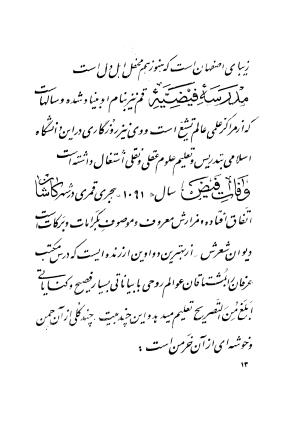 زیبای اصفهان است که هنوز هم محفل اهل دل است
مدرسهٔ فیضیّه قم نیز بنام او بنیاد شده و سالهاست
که از مراکز علمی عالم تشیّع است و وی نیز روزگاری در این دانشگاه
اسلامی بتدریس و تعلیم علوم عقلی و نقلی اشتغال داشته است
وفات فیض سال ۱۰۹۱ هجری قمری در شهر کاشان
اتفاق افتاده و مزارش معروف و موصوف بکرامات و برکات است
دیوان شعرش از بهترین دواوین ارزنده ایست که درس مکتب
عرفان را بمشتاقان عوالم روحی با بیاناتی بسیار فصیح و کنایاتی
ابلغ من التصریح تعلیم میدهد و این چند بیت چند گلی از آن چمن
و خوشه‌ای از آن خرمن است :
۱۳